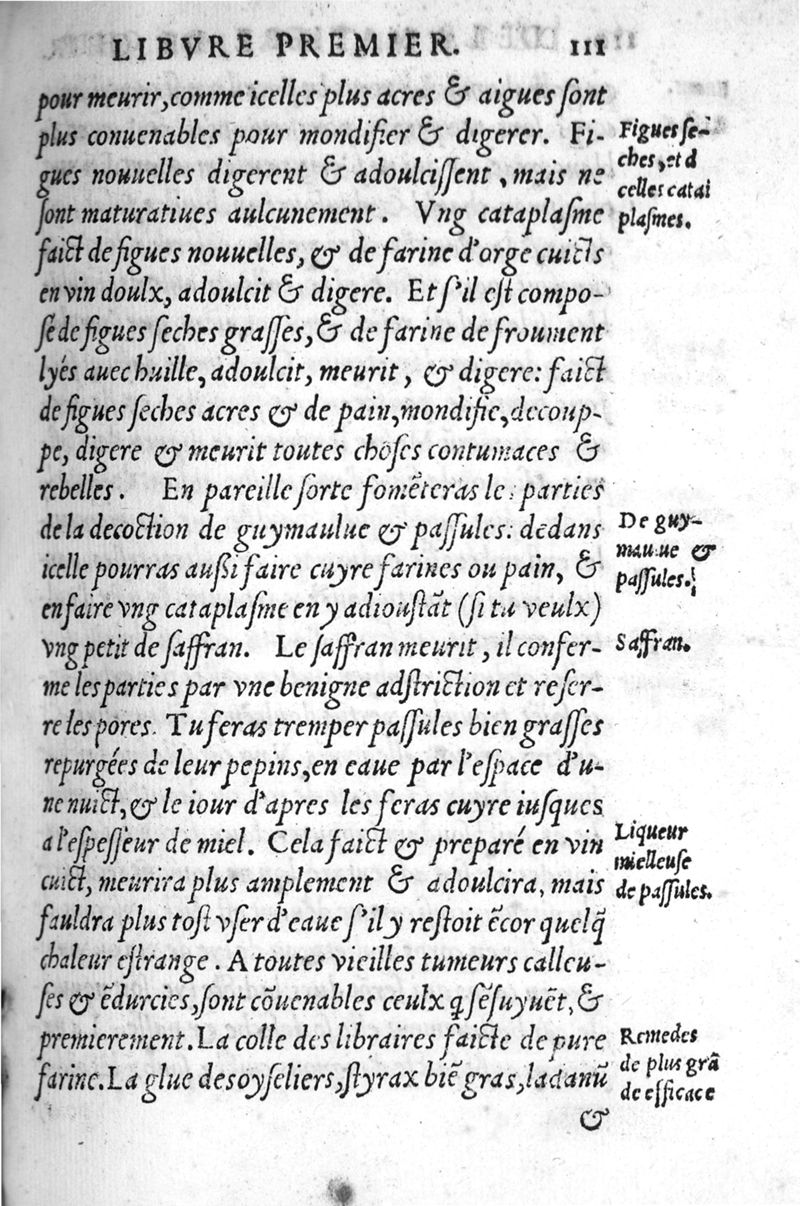 LIBVRE PREMIER. 111
pour meurir, comme icelles plus acres & aigues ſont
plus conuenables pour mondifier & digerer. Fi-
gues nouuelles digerent & adoulciſſent, mais ne
ſont maturatiues aulcunement. Vng cataplaſme
faict de figues nouuelles, & de farine d'orge cuicts
en vin doulx, adoulcit & digere. Et ſ'il eſt compo-
ſé de figues ſeches graſſes, & de farine de froument
lyés auec huille, adoulcit, meurit, & digere: faict
de figues ſeches acres & de pain, mondifie, decoup-
pe, digere & meurit toutes choſes contumaces &
rebelles. En pareille ſorte fomẽteras les parties
de la decoction de guymaulue & paſſules: dedans
icelle pourras auſsi faire cuyre farines ou pain, &
en faire vng cataplaſme en y adiouſtãt (ſi tu veulx)
vng petit de ſaffran. Le ſaffran meurit, il confer-
me les parties par vne benigne adſtriction et reſer-
re les pores. Tu feras tremper paſſules bien graſſes
repurgées de leur pepins, en eaue par l'eſpace d'u-
ne nuict, & le iour d'apres les feras cuyre iuſques
a l'eſpeſſeur de miel. Cela faict & preparé en vin
cuict, meurira plus amplement & adoulcira, mais
fauldra plus toſt vſer d'eaue ſ'il y reſtoit ẽcor quelq̃
chaleur eſtrange. A toutes vieilles tumeurs calleu-
ſes & ẽdurcies, ſont cõuenables ceulx q̃ ſẽſuyuẽt, &
premierement. La colle des libraires faicte de pure
farine. La glue des oyſeliers, ſtyrax biẽ gras, ladanũ
&
Figues ſe-
ches, et d
celles catai
plaſmes.
De guy-
mauue &
paſſules.
Saffran.
Liqueur
mielleuſe
de paſſules.
Remedes
de plus grã
de efficace